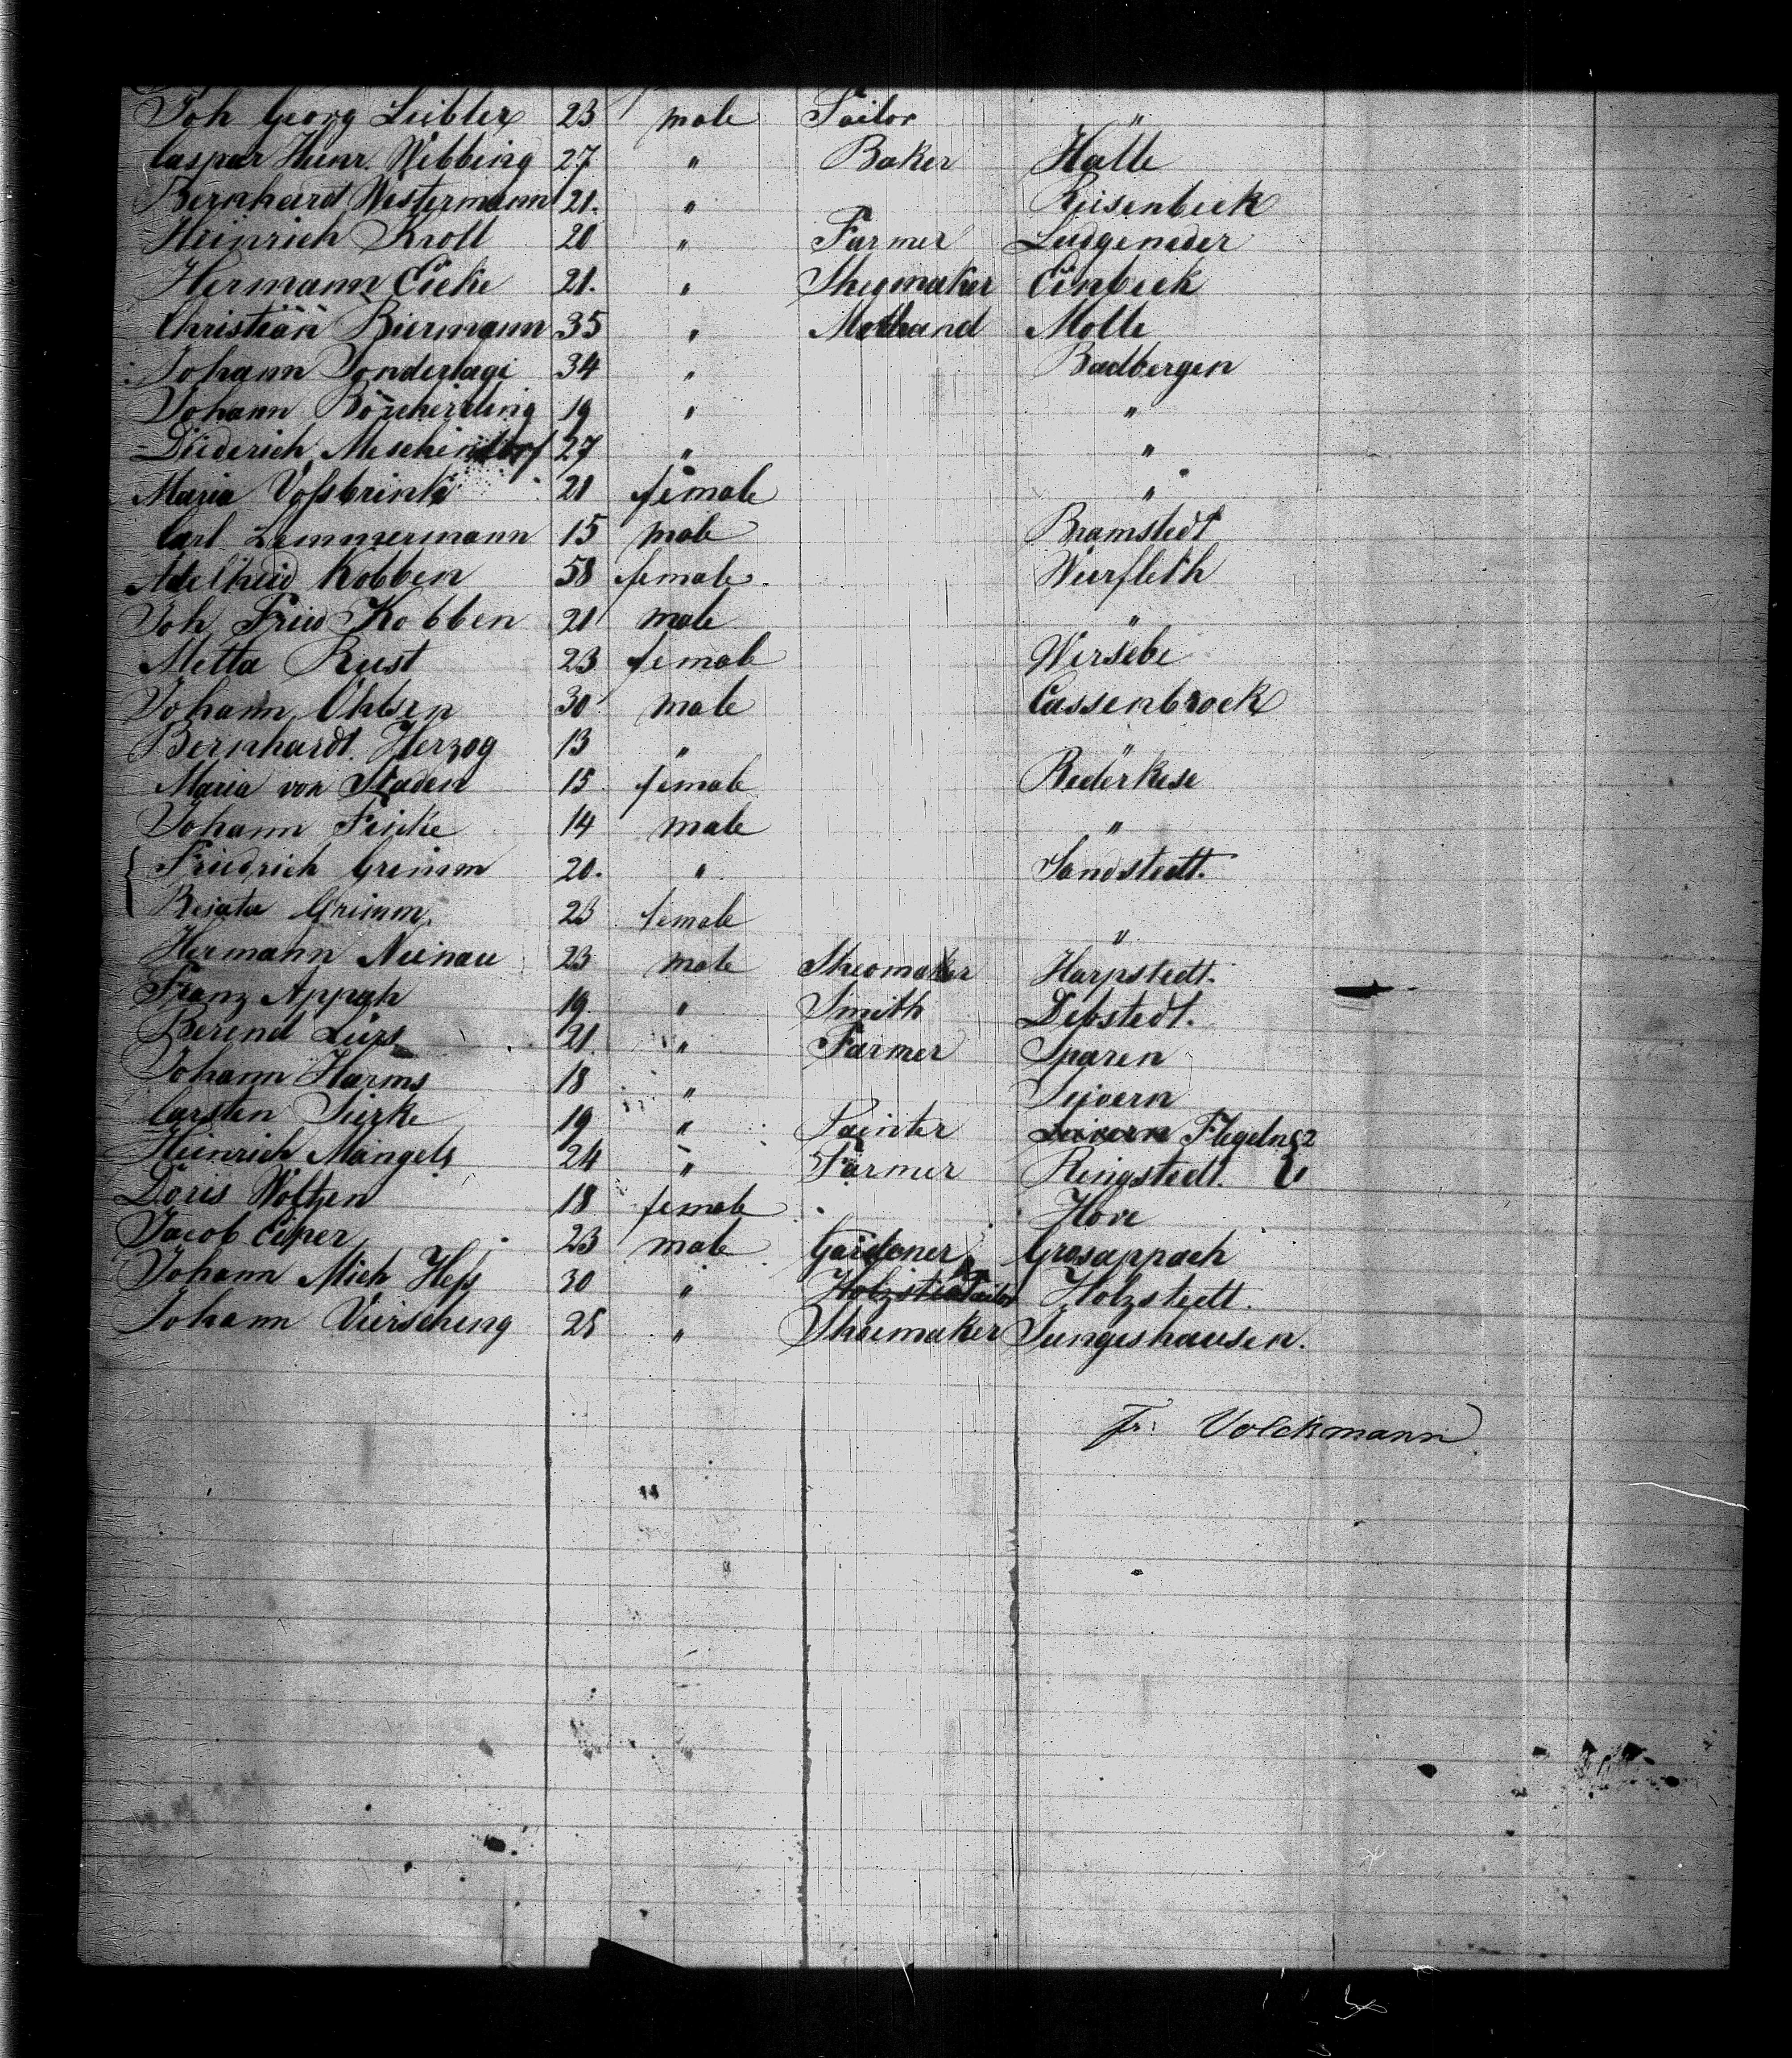 Joh Georg Leibler 23 male Tailor "
Caspar Heinr. Wibbeing 27 " Baker Halle
Bernhardt Westermann 21. " Riesenbeck
Heinrich Kroll 20 " Farmer Ludgeneder
Hermann Eicke 21. " Shoemaker Einbeck
Christian Biermann 35 " Molle
Johann Sonderlage 34 " Badbergen
Johann Borcherding 19 " "
Diederich Meschendorf 27 " "
Maria Voßbrink 21 female "
Carl Lammermann 15 male Bramstedt
Adelheid Kobben 58 female. Wurfleth
Joh Fried Kobben 21 male "
Metta Rust 23 female Wersebe
Johann Ohlsen 30 male Cassenbrock
Bernhardt Herzog 13 " "
Maria von Staden 15 female Bederkese
Johann Fricke 14 male "
Friedrich Grimm 20. " Sandstedt.
Beiata Grimm. 23 female "
Hermann Nienau 23 male Sheomaker Harpstedt.
Franz Appah 19. " Smith Debstedt.
Berend Lürs 21. " Farmer Sparen
Johann Harms 18 " Sievern
Carsten Sierke 19 " Painter Sievern Flegeln
Heinrich Mangels 24 " Farmer Ringstedt.
Doris Woltzen 18 female Hove
Jacob Eiper 23 male Gardener Grosappach
Johann Mich Heß 30 " Holzstedt Tailor Holzstedt.
Johann Vierscheng 25 " Shoemaker Jungeshausen.
Fr: Volckmann